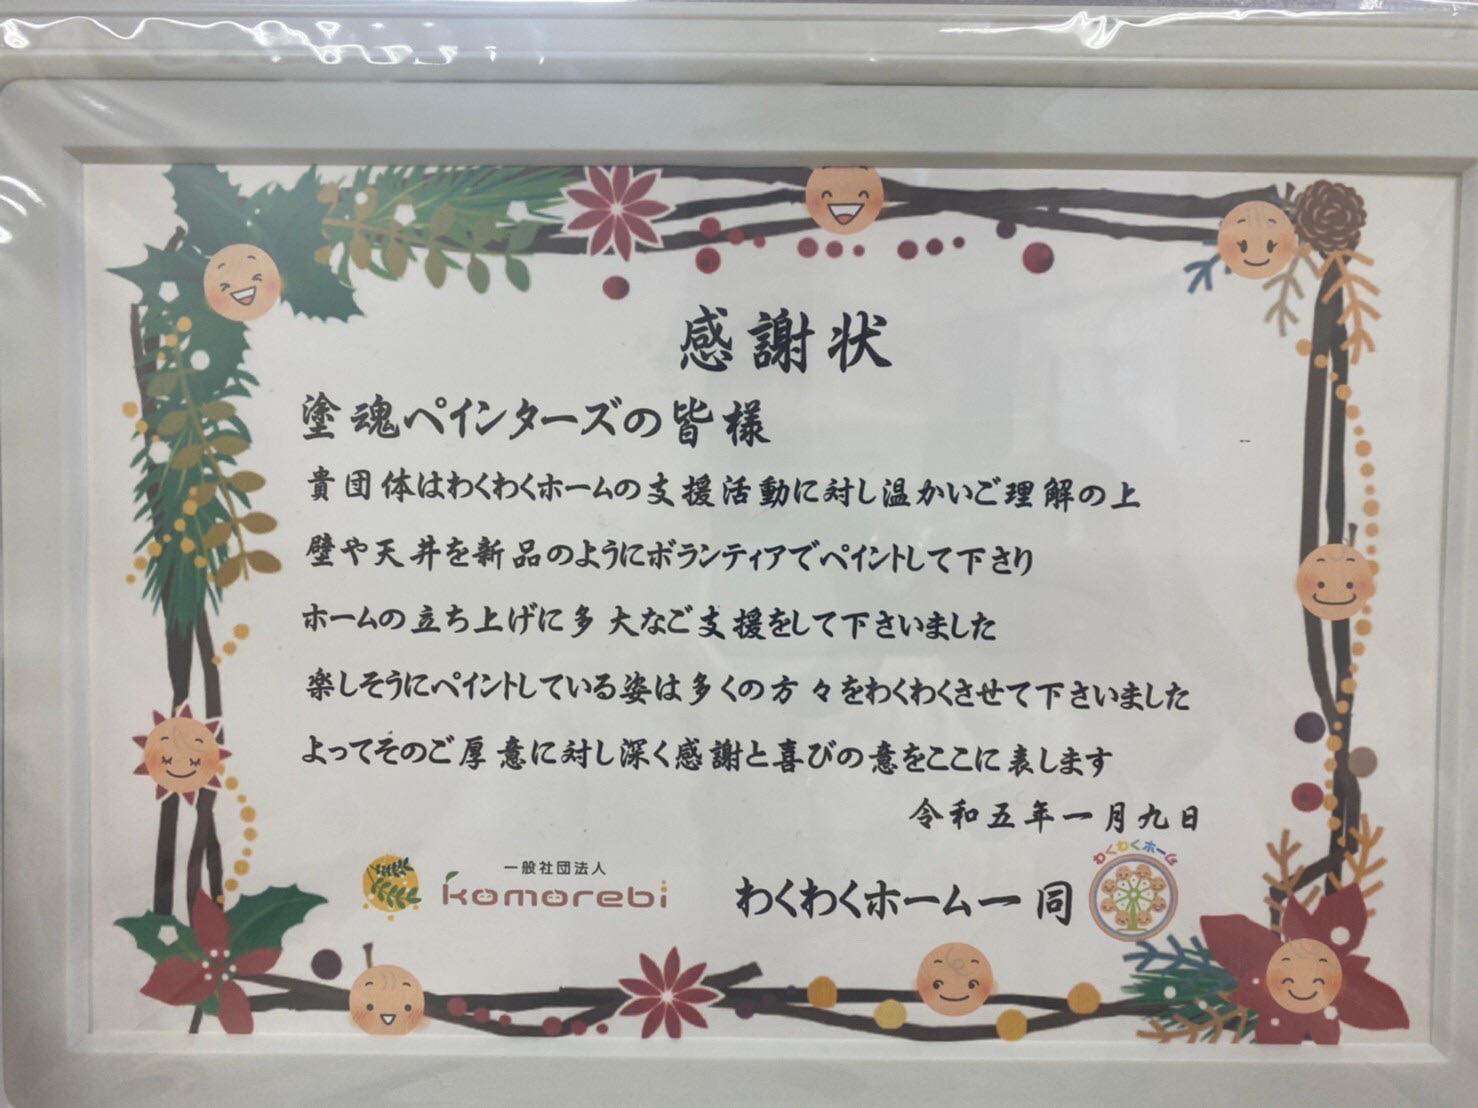 感謝状
塗魂ペインターズの皆様
貴団体はわくわくホームの支援活動に対し温かいご理解の上
壁や天井を新品のようにボランティアでペイントして下さり
ホームの立ち上げに多大なご支援をして下さいました
楽しそうにペイントしている姿は多くの方々をわくわくさせて下さいました
よってそのご厚意に対し深く感謝と喜びの意をここに表します
令和五年一月九日
一般社団法人
komorebi
わくわくホーム一同
わくわくホーム